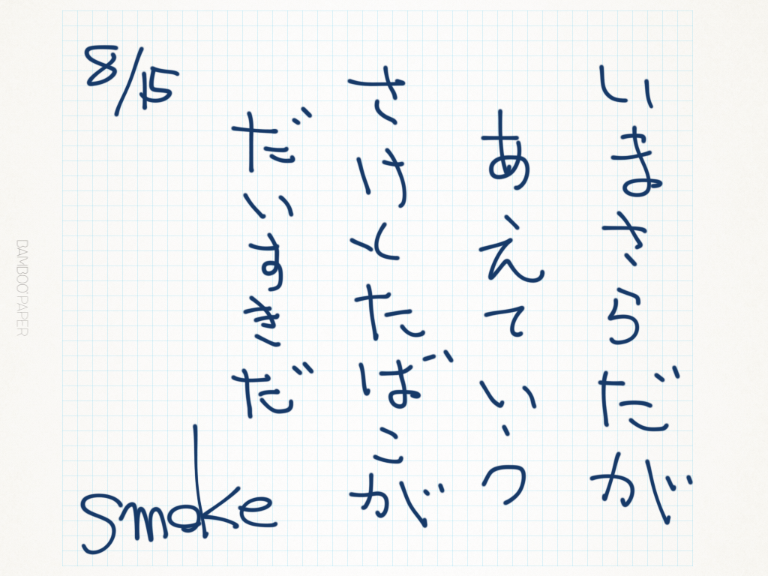 いまさらだが
あえていう
さけとたばこが
だいすきだ
8/15
smoke
DAMDOCPAPER